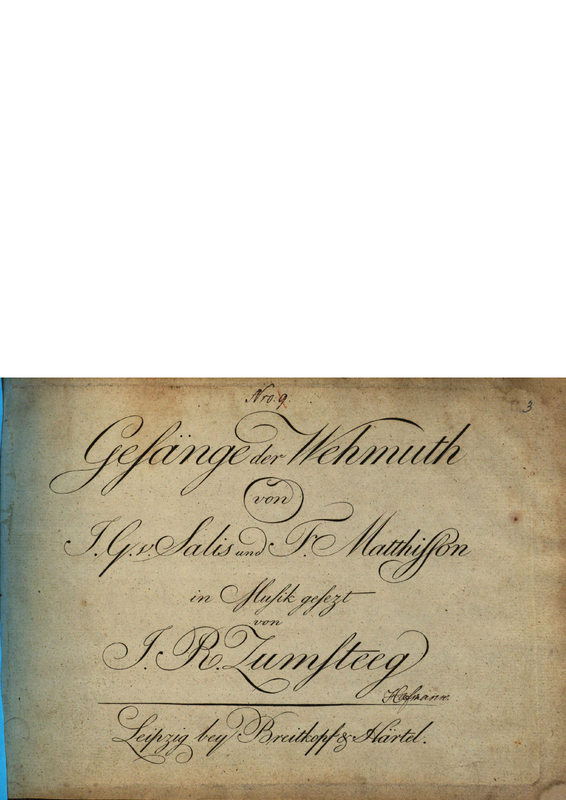 Nro: 9.
3
Gesänge der Wehmuth
von
J. G. v. Salis und Fr. Matthisson
in Musik gesezt
von
J. R. Zumsteeg
Hofmann.
Leipzig bey Breitkopf & Härtel.